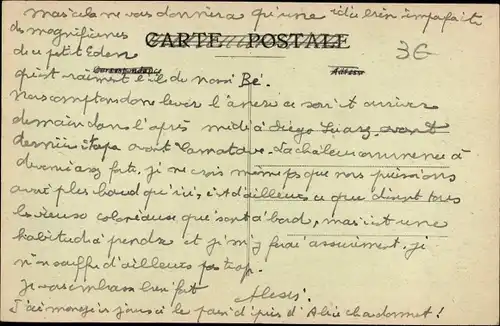 mais cela ne vous donnera qu'une idée bien imparfaite
des magnificences
CARTE POSTALE
3€
du petit Eden
Correspondance
Adresse
qu'est vraiment l'île de Nossi Bé.
Nous comptons donc lever l'ancre ce soir et arriver
demain dans l'après midi à Diégo Suarez, avant
dernière étape avant Tamatave. La chaleur commence à
devenir assez forte, je ne crois même pas que nous puissions
avoir plus chaud qu'ici, c'est d'ailleurs ce que disent tous
les vieux coloniaux qui sont à bord, mais c'est une
habitude à prendre et je m'y ferai assurément, je
n'en souffre d'ailleurs pas trop.
Je vous embrasse bien fort
Alexis.
J'ai mangé ces jours ci le pain d'épice d'Alice Chardonnet!